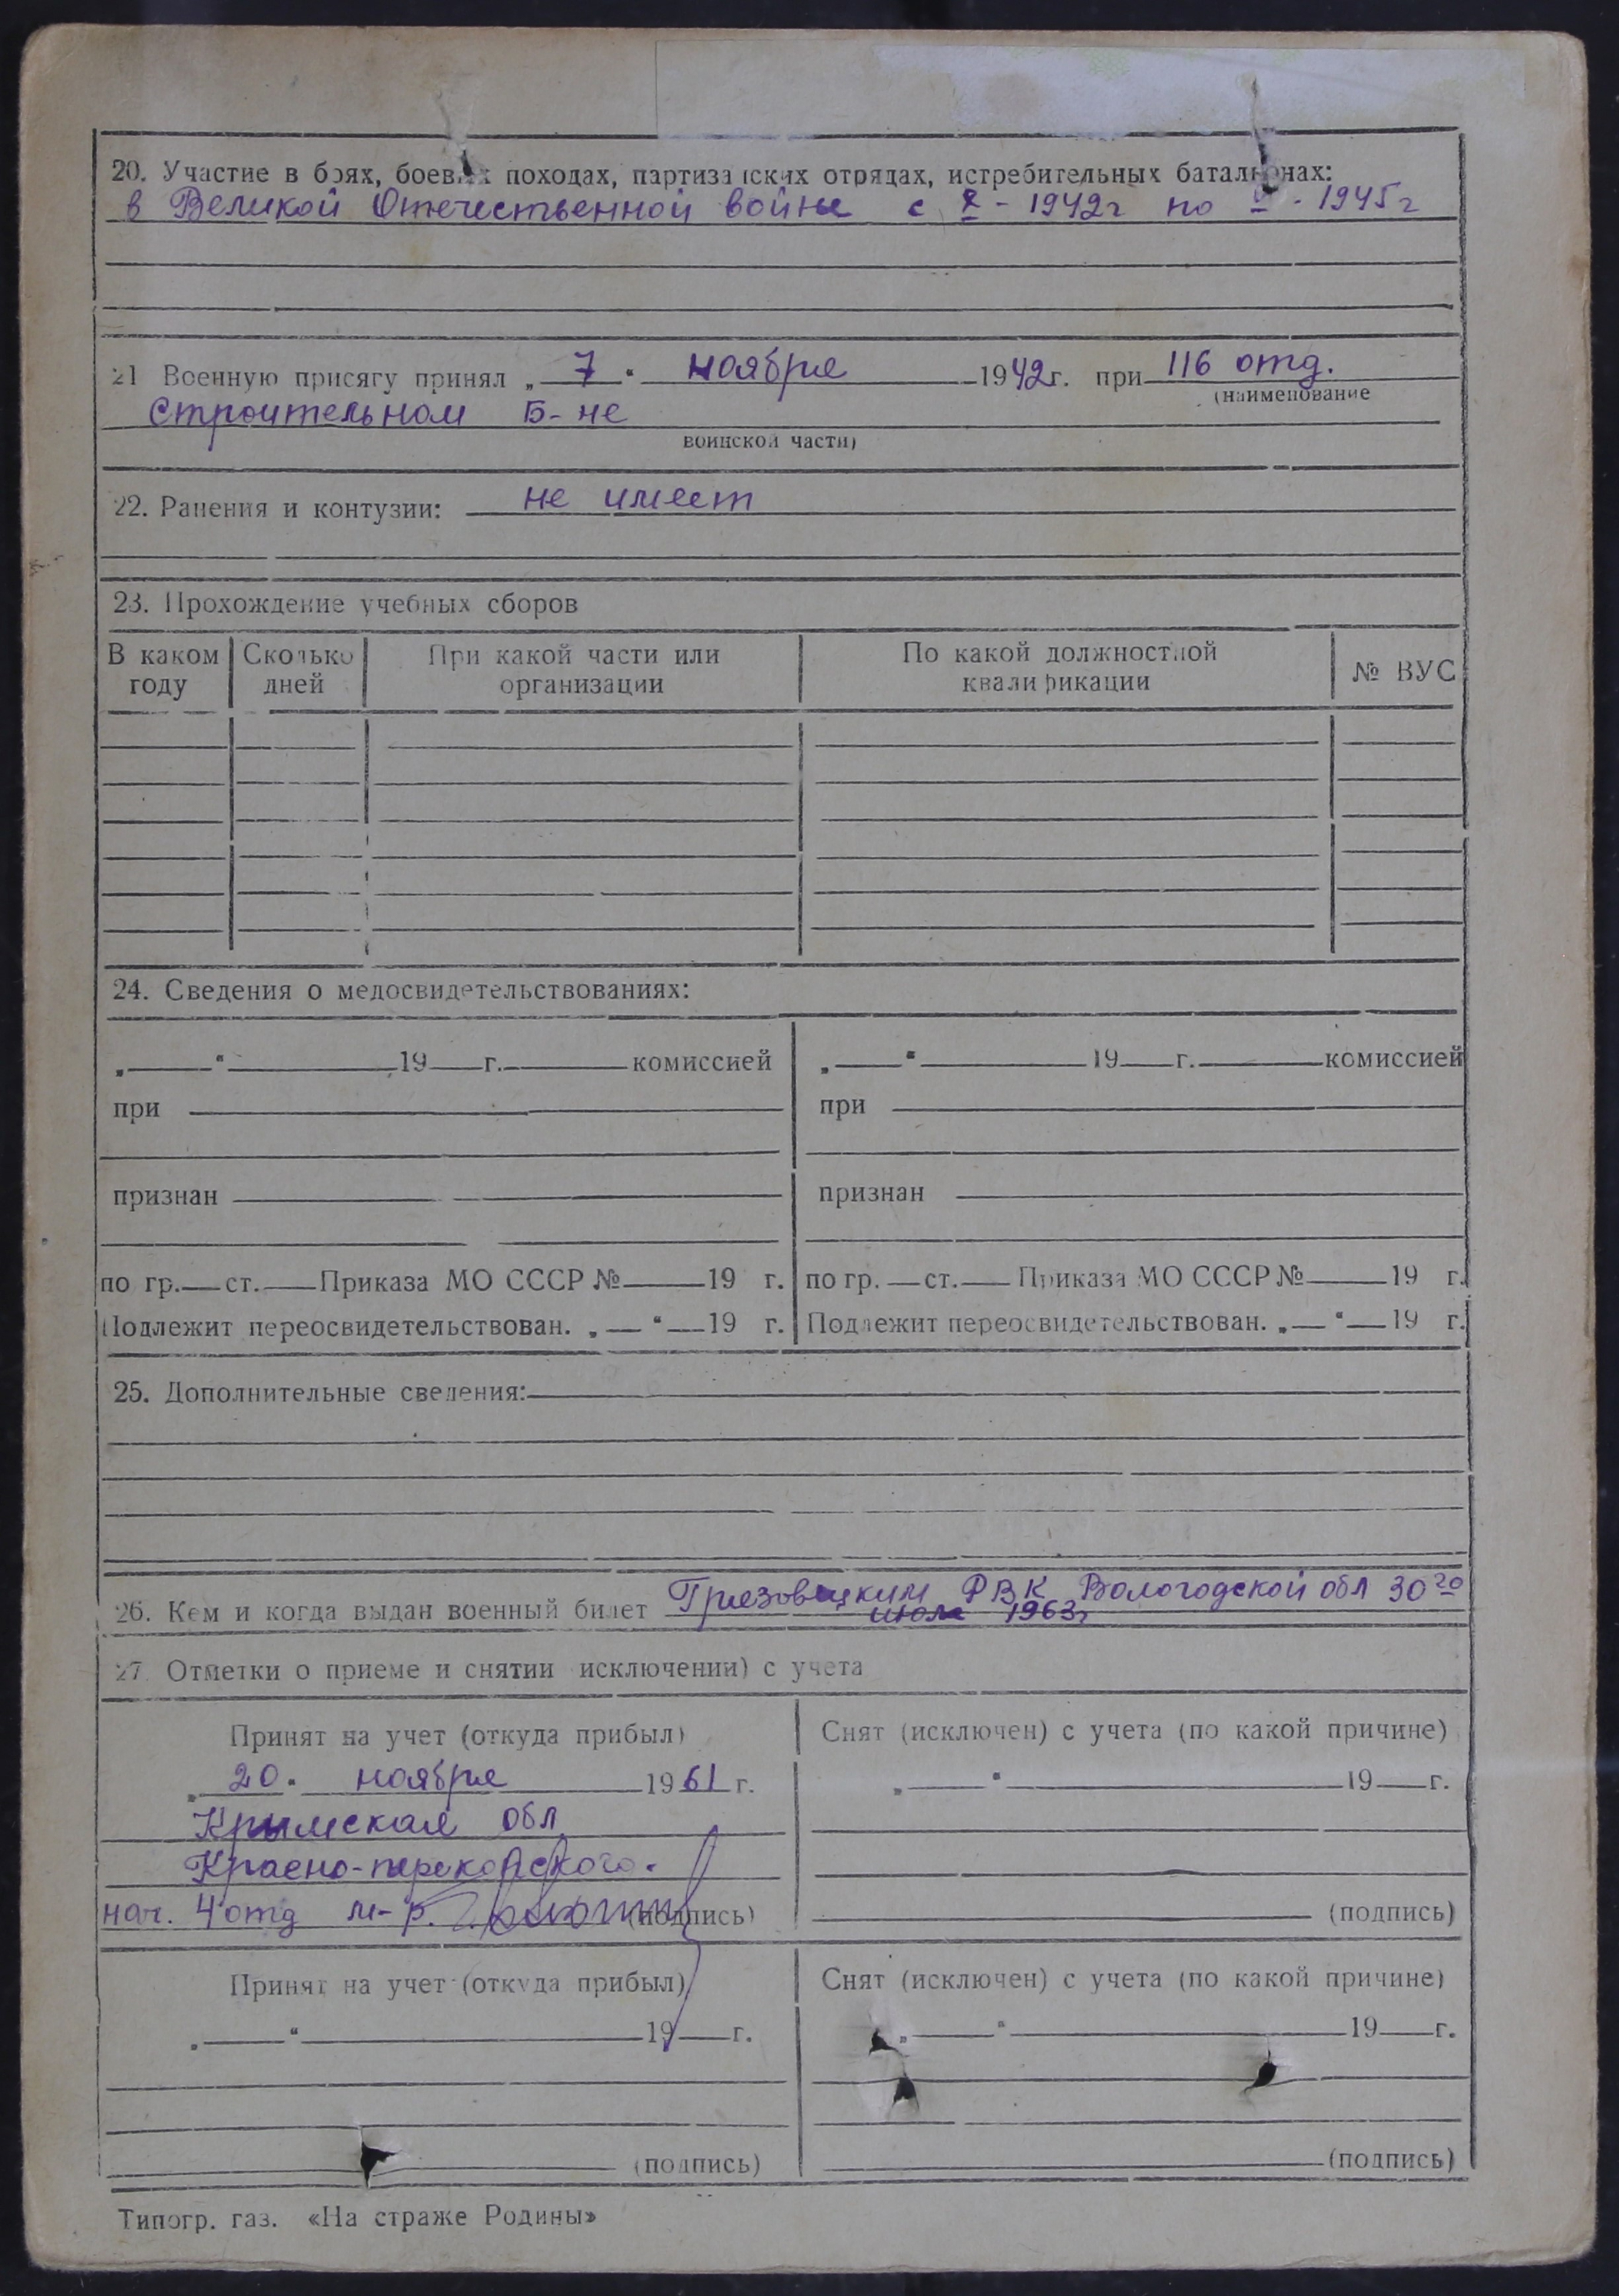 20. Участие в боях, боевых походах, партизанских отрядах, истребительных батальонах:
в Великой Отечественной войне с X - 1942г по - 1945г
21 Военную присягу принял „ 7 “ ноября 1942г. при 116 отд.
(наименование
строительном Б-не
воинской части)
22. Ранения и контузии: не имеет
23. Прохождение учебных сборов
В каком Сколько При какой части или По какой должностной № ВУС
году дней организации квалификации
24. Сведения о медосвидетельствованиях:
„ “ 19 г. комиссией „ “ 19 г. комиссией
при при
признан признан
по гр. ст. Приказа МО СССР № 19 г. по гр. ст. Приказа МО СССР № 19 г.
Подлежит переосвидетельствован. „ “ 19 г. Подлежит переосвидетельствован. „ “ 19 г.
25. Дополнительные сведения:
26. Кем и когда выдан военный билет Грязовецким РВК Вологодской обл 30го
июля 1963г
27. Отметки о приеме и снятии исключении) с учета
Принят на учет (откуда прибыл) Снят (исключен) с учета (по какой причине)
„ 20 “ ноября 1961 г. „ “ 19 г.
Крымская обл
Красно-перекопского.
нач. 4 отд м-р. (подпись) (подпись)
Принят на учет (откуда прибыл) Снят (исключен) с учета (по какой причине)
„ “ 19 г. „ “ 19 г.
(подпись) (подпись)
Типогр. газ. «На страже Родины»